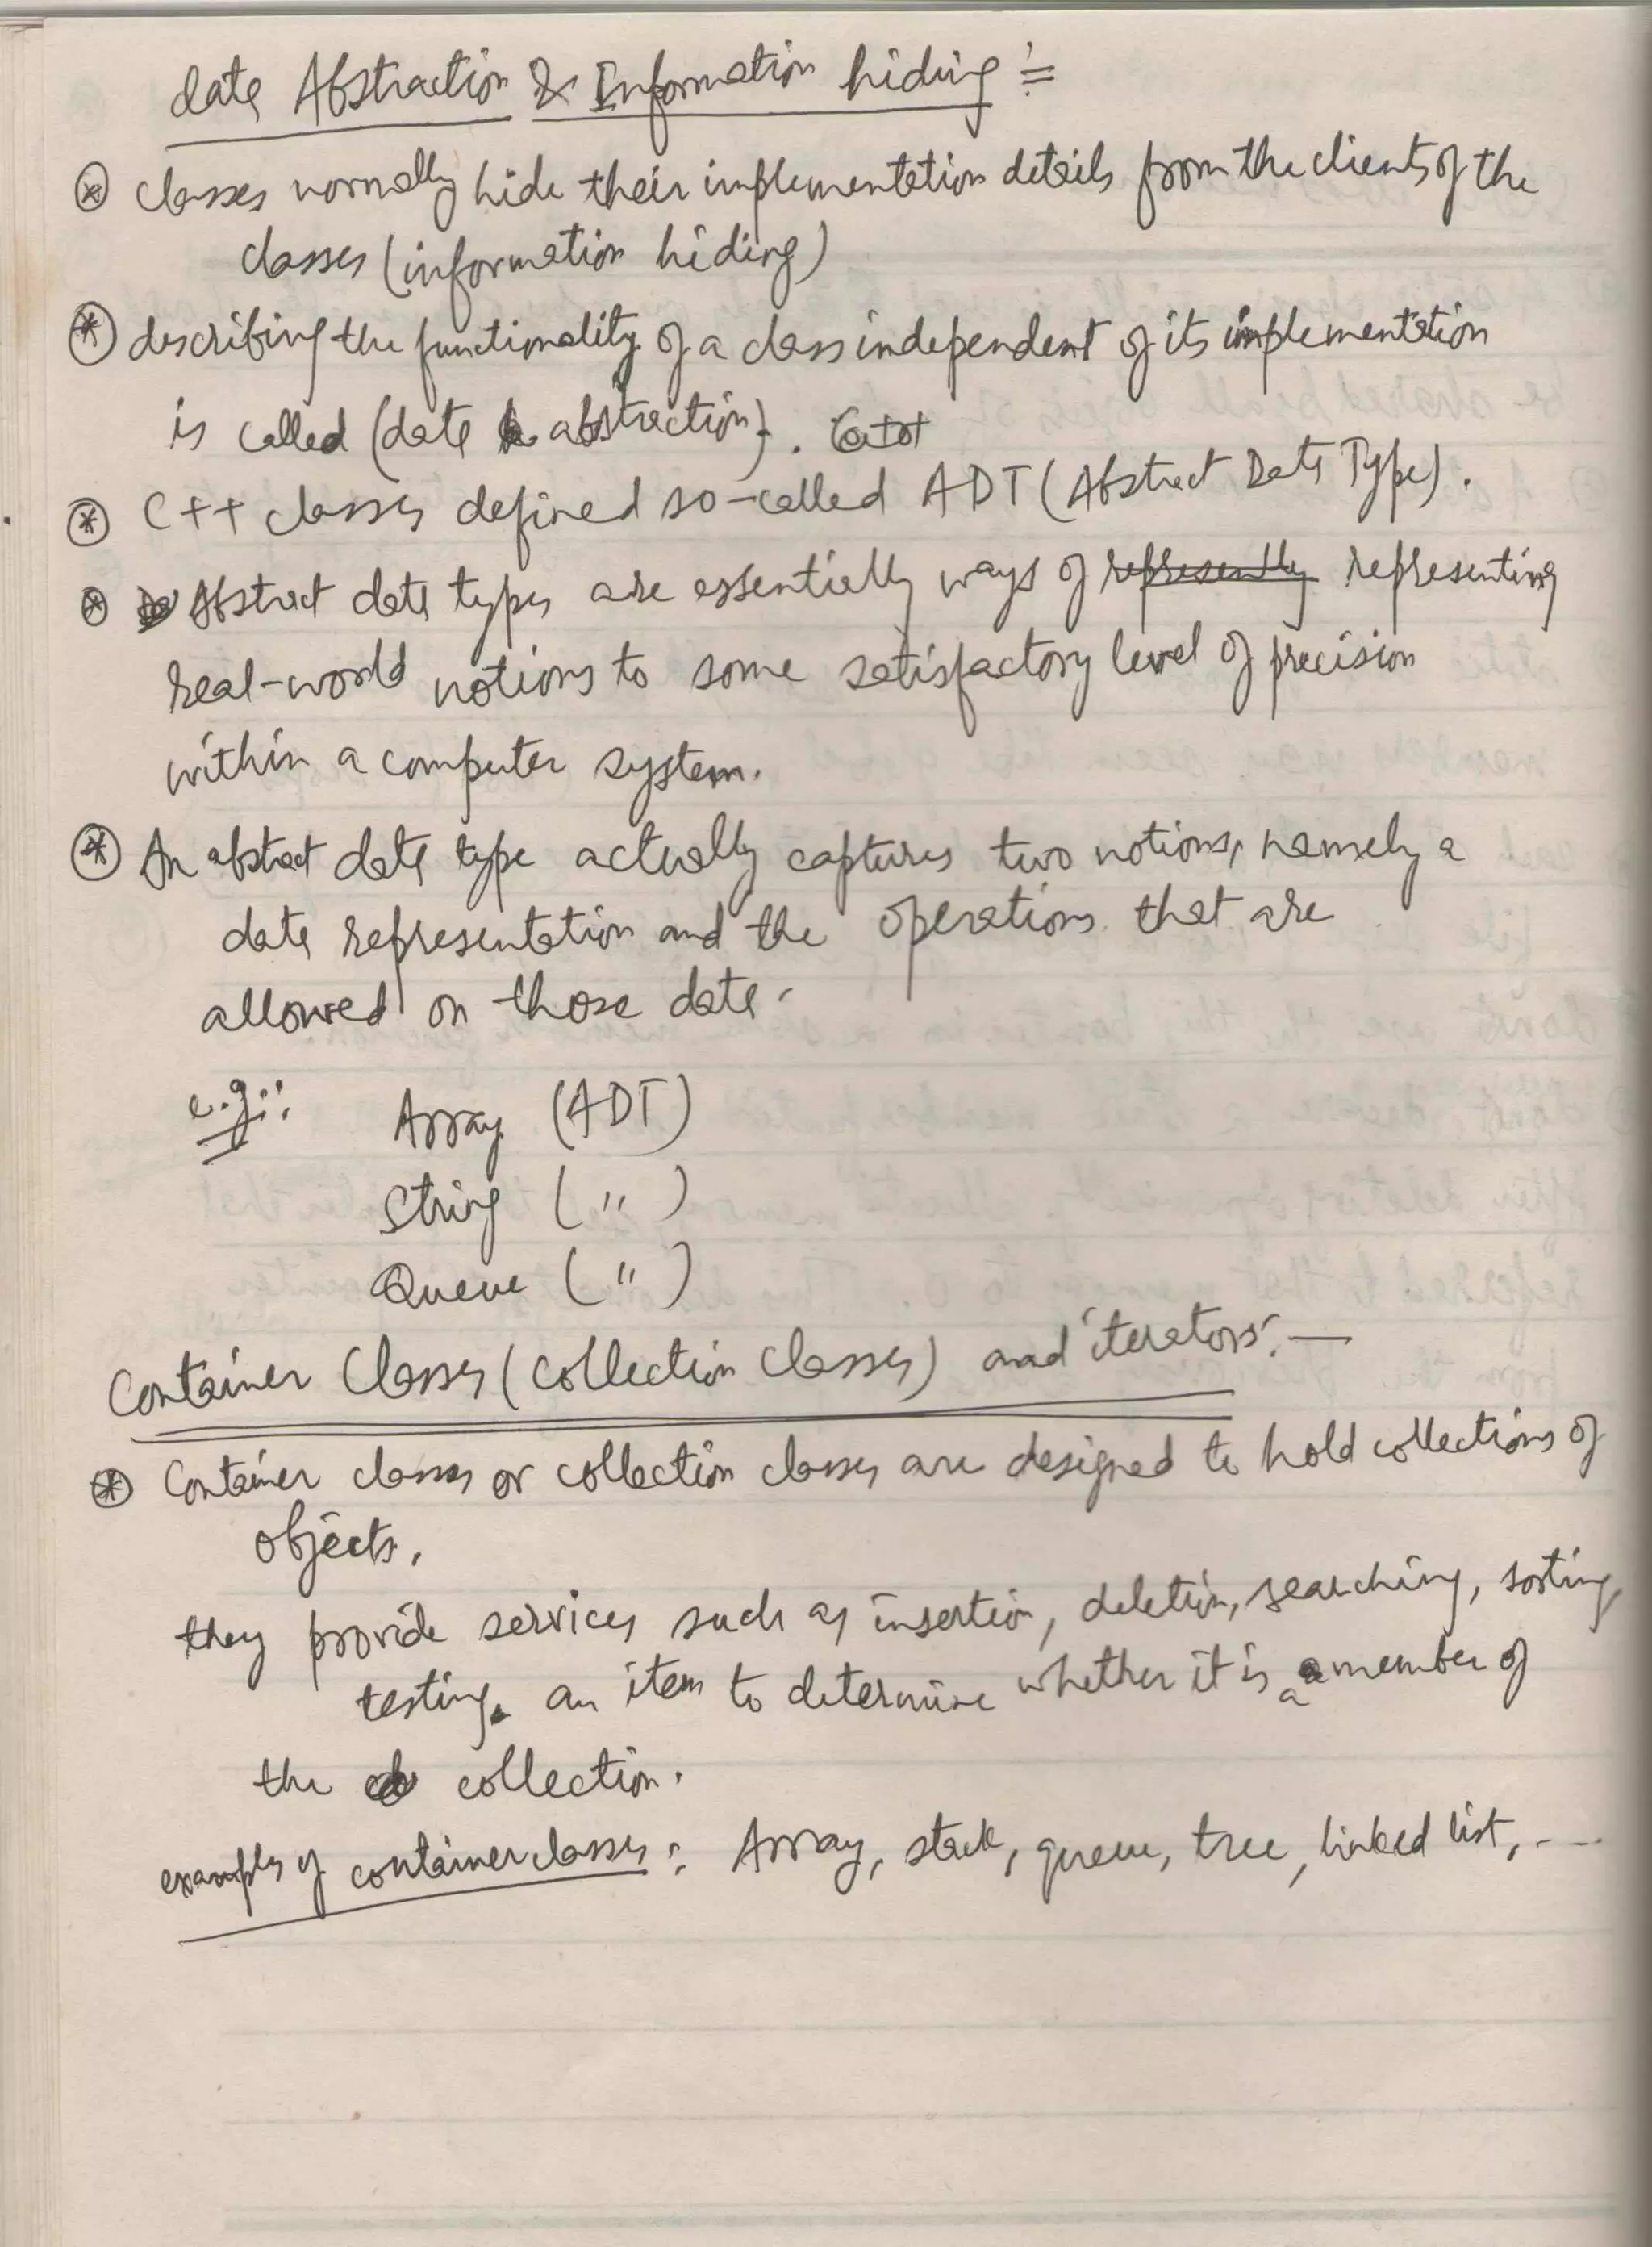 data Abstraction & Information hiding :=
* classes normally hide their implementation details from the clients of the
classes (information hiding)
* describing the functionality of a class independent of its implementation
is called (data abstraction).
* C++ classes defined so-called ADT (Abstract Data Type).
* Abstract data types are essentially ways of representing
real-world notions to some satisfactory level of precision
within a computer system.
* An abstract data type actually captures two notions, namely a
data representation and the operations that are
allowed on those data.
e.g.:
Array (ADT)
String ( " )
Queue ( " )
Container Classes (Collection Classes) and iterators: —
* Container classes or collection classes are designed to hold collections of
objects.
they provide services such as insertion, deletion, searching, sorting,
testing an item to determine whether it is a member of
the collection.
examples of container classes : Array, stack, queue, tree, linked list, ---